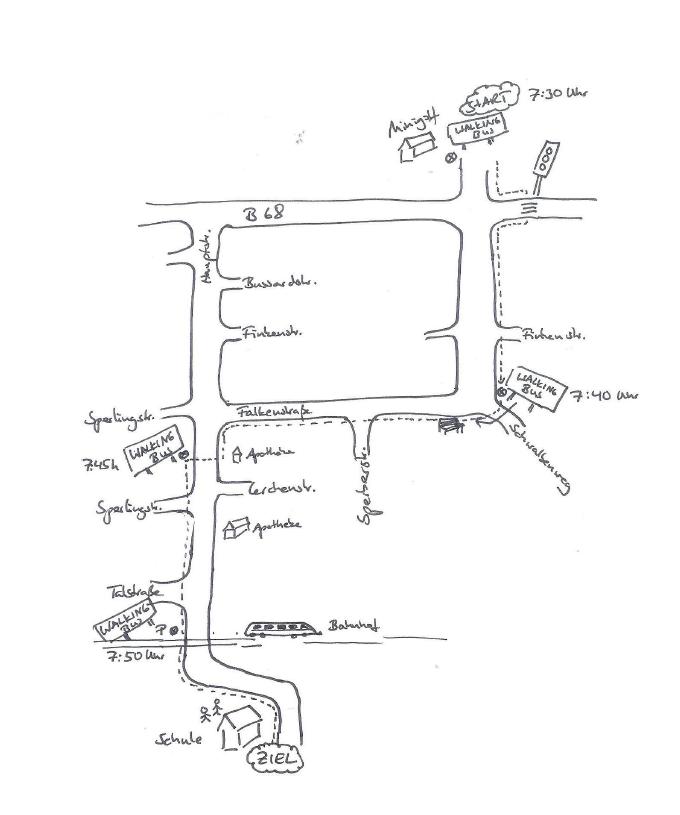 START
7:30 Uhr
Minigolf
WALKING
BUS
B 68
Hauptstr.
Bussardstr.
Finkenstr.
Finkenstr.
WALKING
BUS
7:40 Uhr
Falkenstraße
Sperlingstr.
WALKING
BUS
7:45h
Apotheke
Schwalbenweg
Sperberstr.
Lerchenstr.
Sperlingstr.
Apotheke
Talstraße
WALKING
BUS
P
Bahnhof
7:50 Uhr
Schule
ZIEL